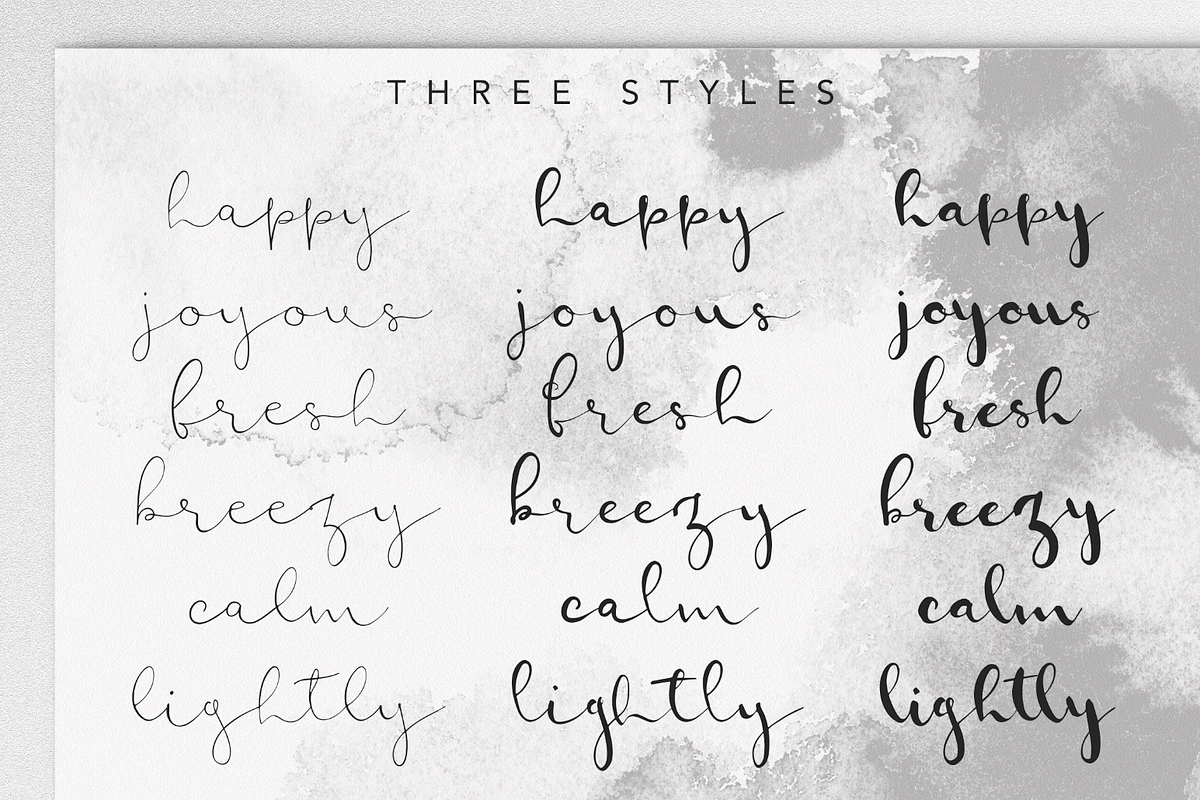 THREE STYLES
happy happy happy
joyous joyous joyous
fresh fresh fresh
breezy breezy breezy
calm calm calm
lightly lightly lightly